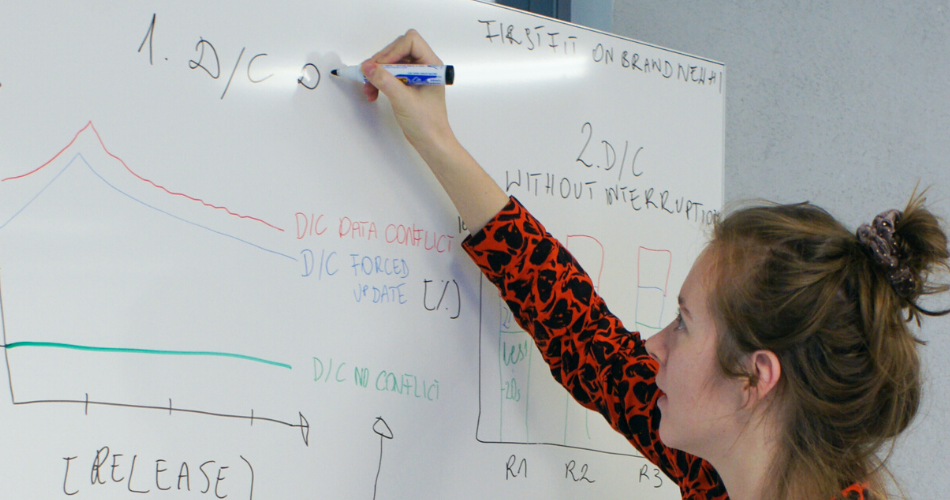 1. D/C D
FIRST FIT ON BRAND NEW
2. D/C
WITHOUT INTERRUPTION
D/C DATA CONFLICT
D/C FORCED
UPDATE
[%]
D/C NO CONFLICT
[RELEASE]
R1 R2 R3